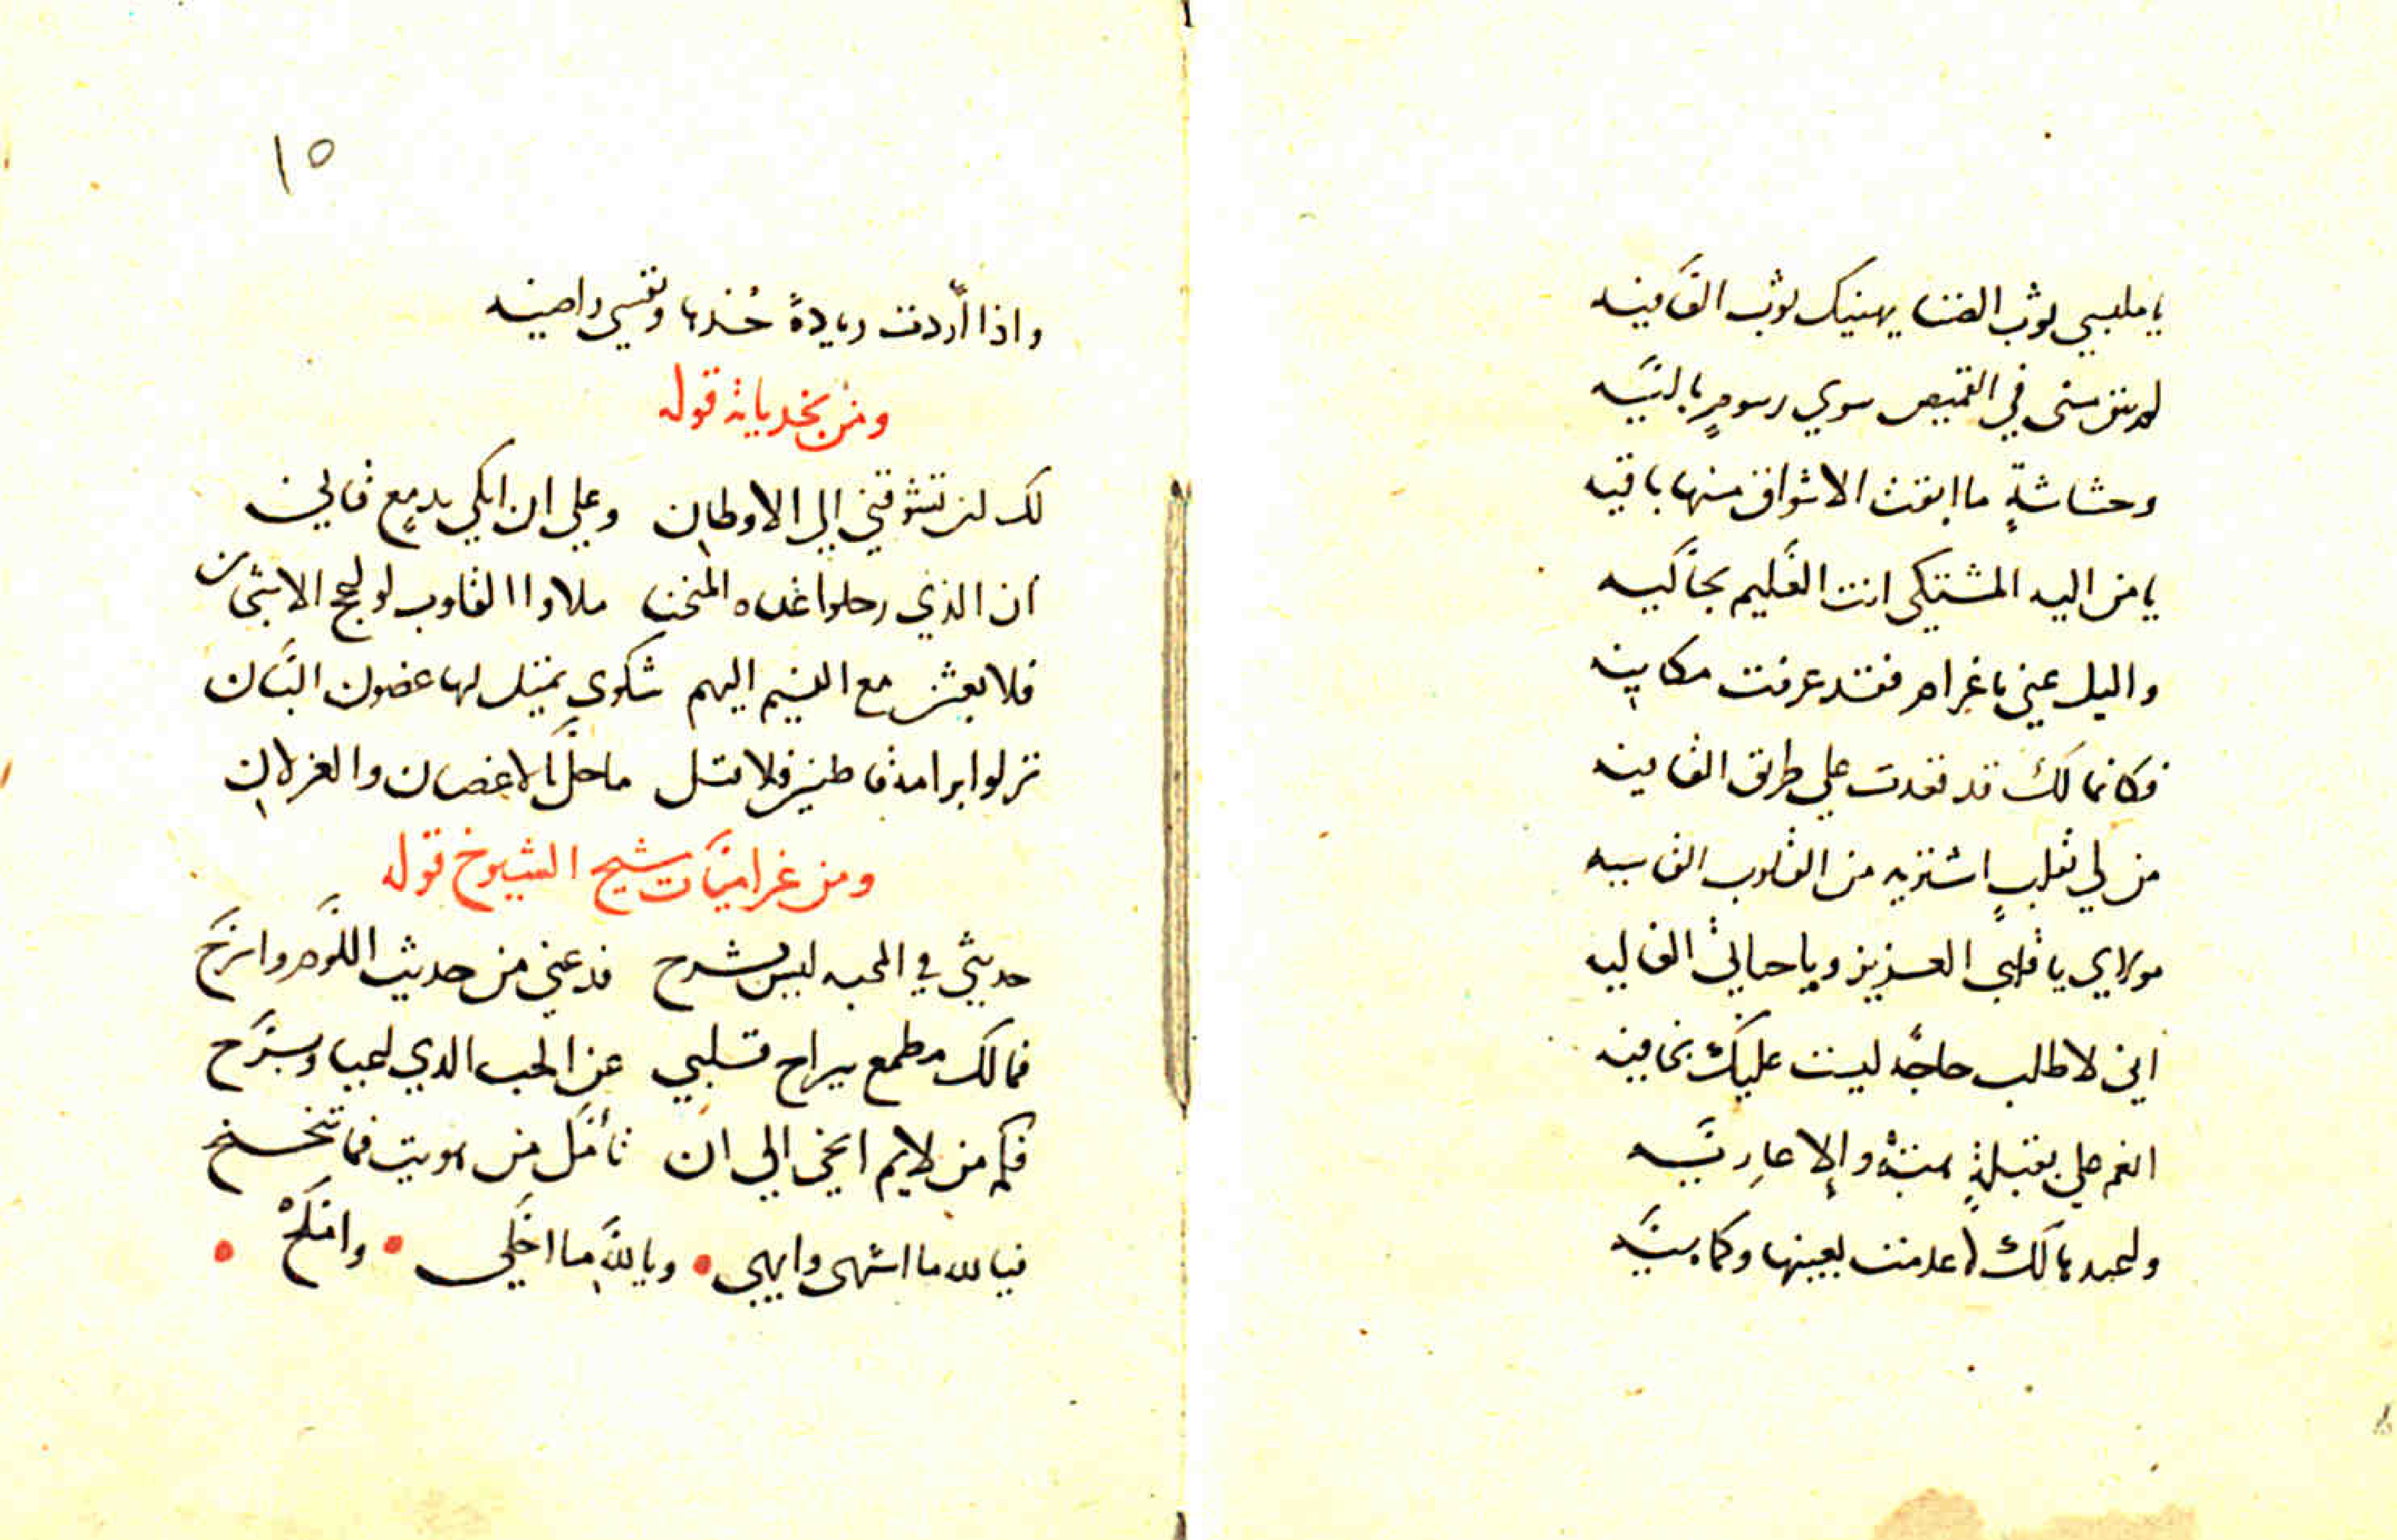 يا ملبسي ثوب الضنا يهنيك ثوب العافيه
لم يبق مني في القميص سوي رسوم باليه
وحشاشةٍ ما ابقت الاشواق منها باقيه
يا من اليه المشتكي انت العليم بحاليه
واليك عني يا غرام فقد عرفت مكانيه
فكانما لك قد قعدت علي طريق القافيه
من لي بقلبٍ اشتريه من القلوب القاسيه
مولاي يا قلبي العزيز ويا حياتي الغاليه
اني لاطلب حاجةً ليست عليك بخافيه
انعم علي بقبلةٍ هبةً وإلا عاريه
واعيدها لك لا عدمت بعينها وكما هيه
١٥
واذا أردت زيادةً خُذها ونفسي راضيه
ومن نجدياته قوله
لك ان تشوقني الي الاوطان وعلي ان ابكي بدمعٍ قاني
ان الذي رحلوا غداه المنحنا ملاوا القلوب لواعج الاشجان
فلابعثن مع النسيم اليهم شكوي تميل لها غصون البان
نزلوا برامة قاطنين فلا تسل ما حل بالاغصان والغزلانِ
ومن غراميات شيخ الشيوخ قوله
حديثي في المحبه ليس يشرح فدعني من حديث اللوم وانزح
فما لك مطمع براح قلبي عن الحب الذي اعيا وبرّح
فكم من لايم الحي الي ان تأمّل من هويت فما تنحنح
فيالله ما اشهي وابهي وياللهِ ما احلي واملح